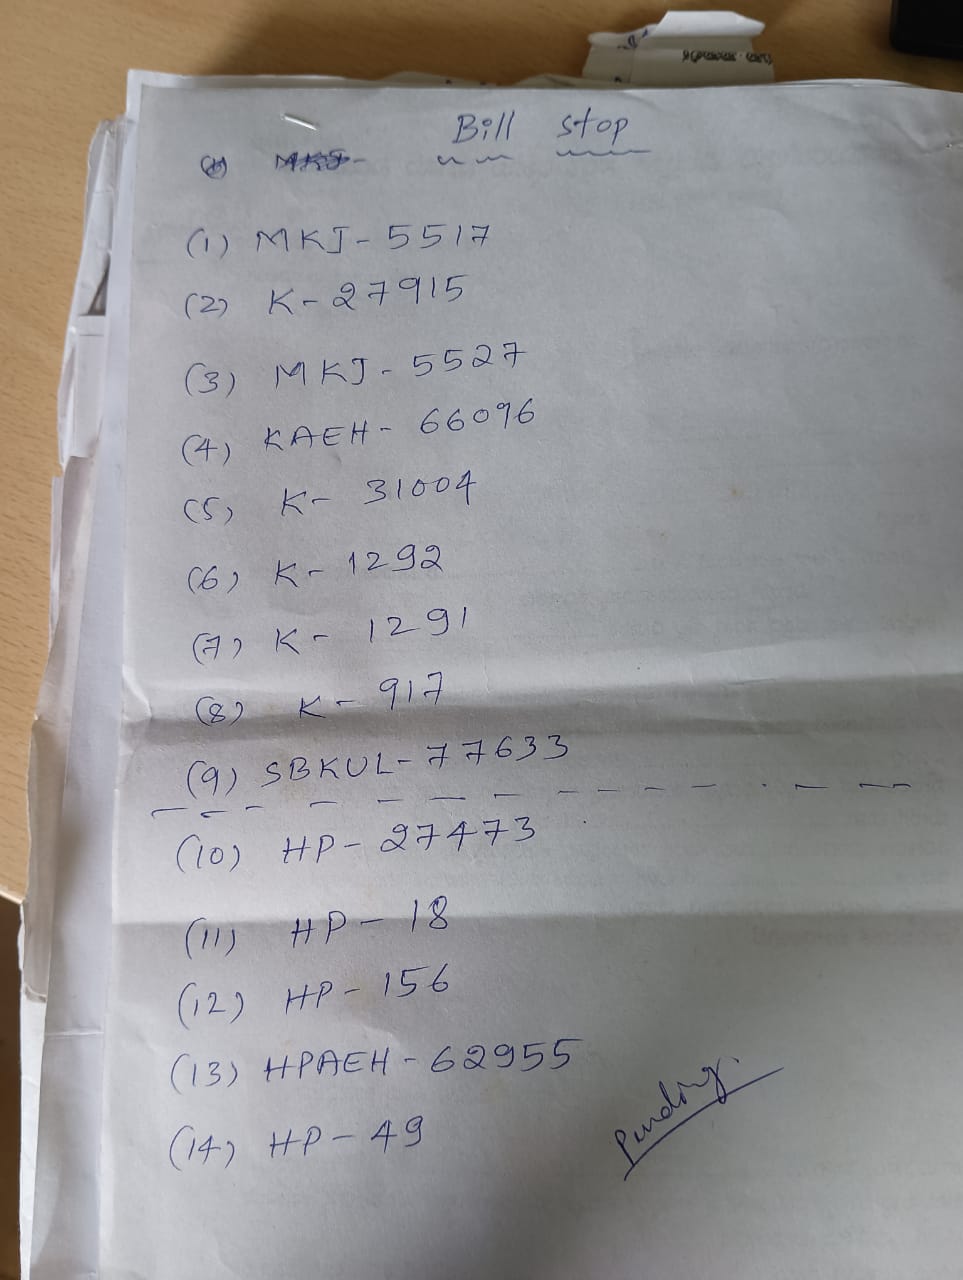 Bill stop
(1) MKJ-5517
(2) K-27915
(3) MKJ-5527
(4) KAEH-66096
(5) K-31004
(6) K-1292
(7) K-1291
(8) K-917
(9) SBKUL-77633
(10) HP-27473
(11) HP-18
(12) HP-156
(13) HPAEH-62955
(14) HP-49
Pending.